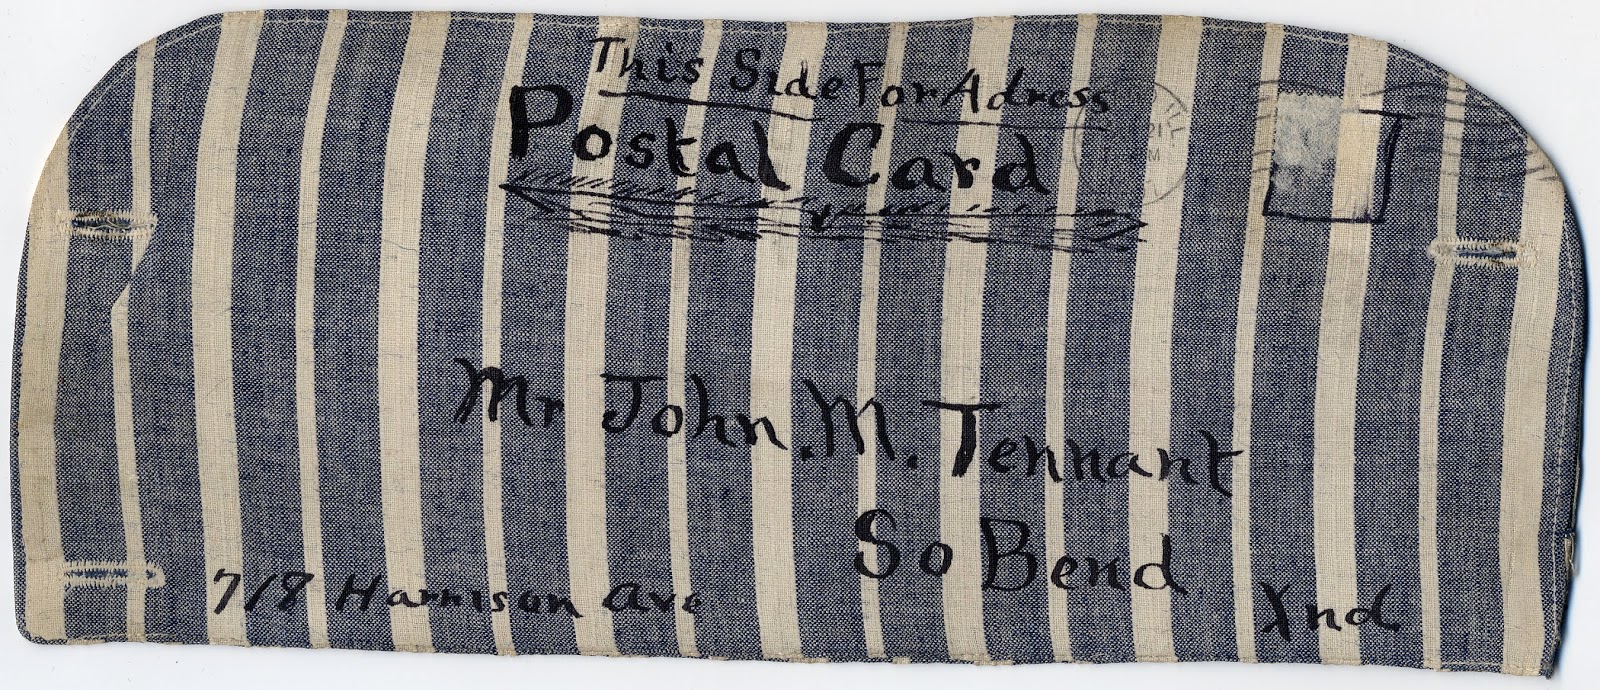 This Side For Adress
Postal Card
Mr John. M. Tennant
So Bend
718 Harrison Ave
Ind